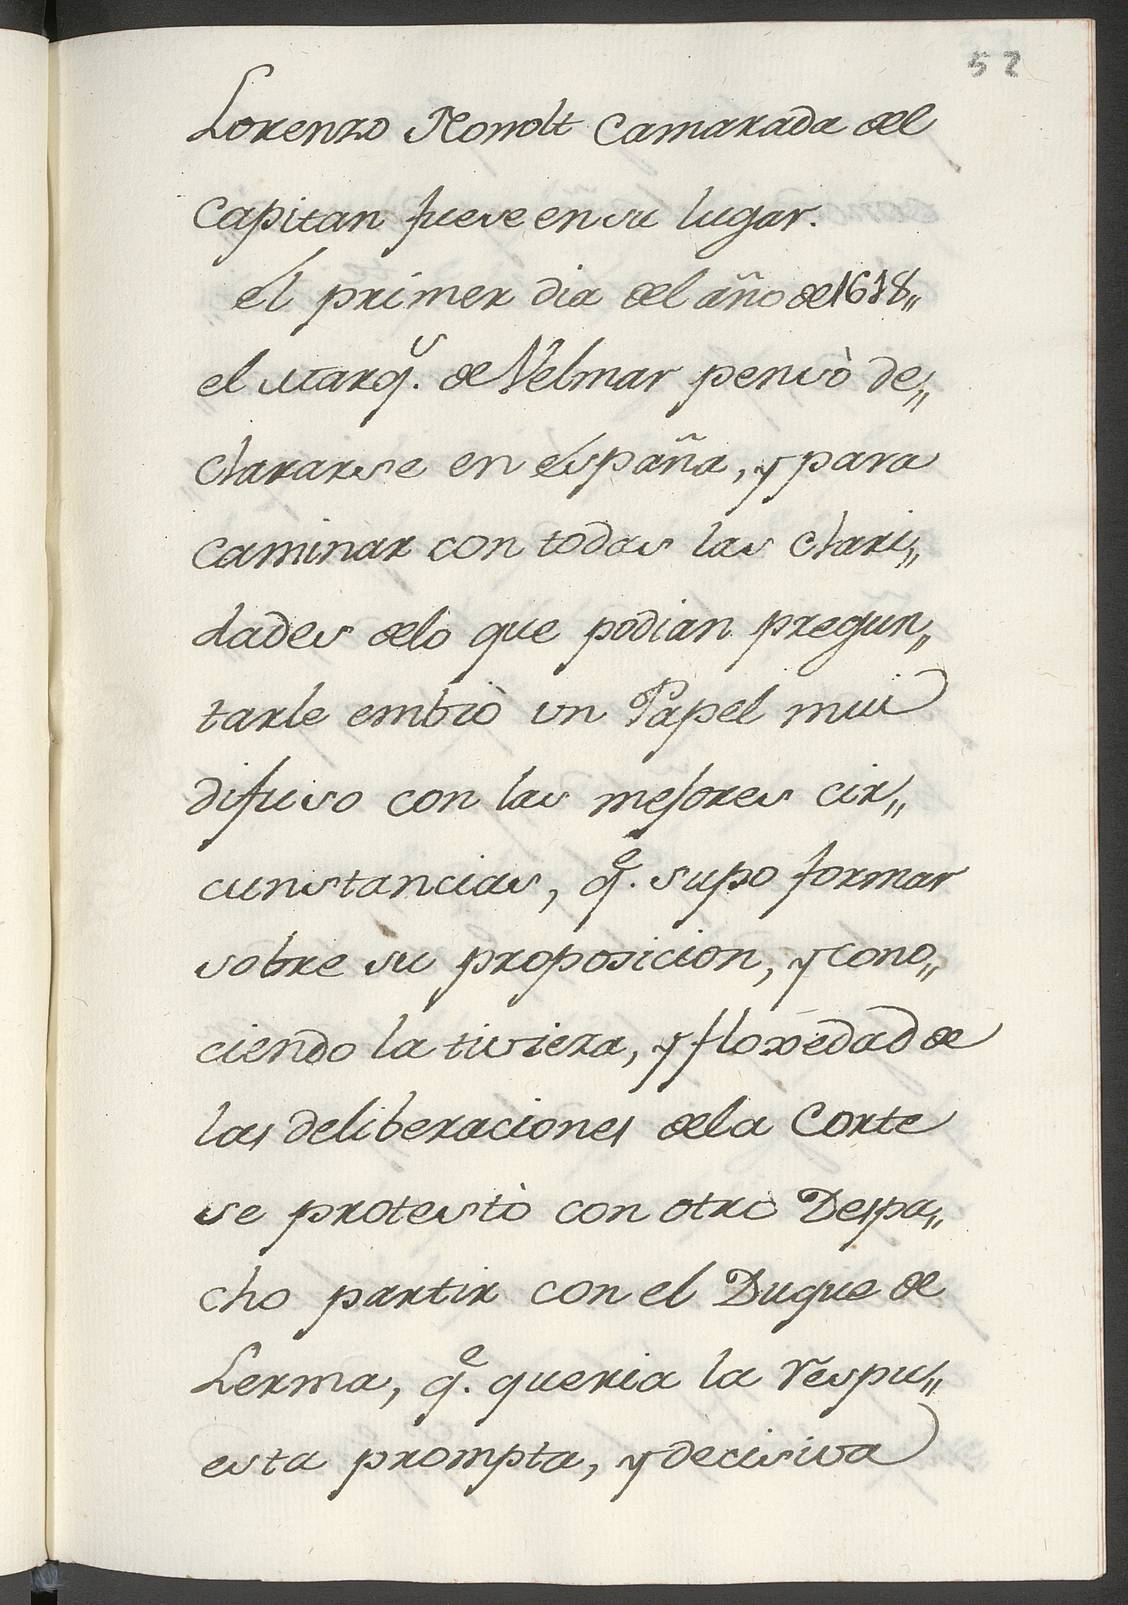 52
Lorenzo Nonolt Camarada del
Capitan fuese en su lugar.
El primer dia del año de 1618,,
el Marq.s de Velmar pensò de,,
clararse en España, y para
caminar con todas las clari,,
dades delo que podian pregun,,
tarle embiò un Papel mui
difuso con las mejores cir,,
cunstancias, q.e supo formar
sobre su proposicion, y cono,,
ciendo la tiviera, y floxedad de
las deliberaciones dela Corte
se protestò con otro Despa,,
cho partir con el Duque de
Lerma, q.e queria la respu,,
esta prompta, y decisiva